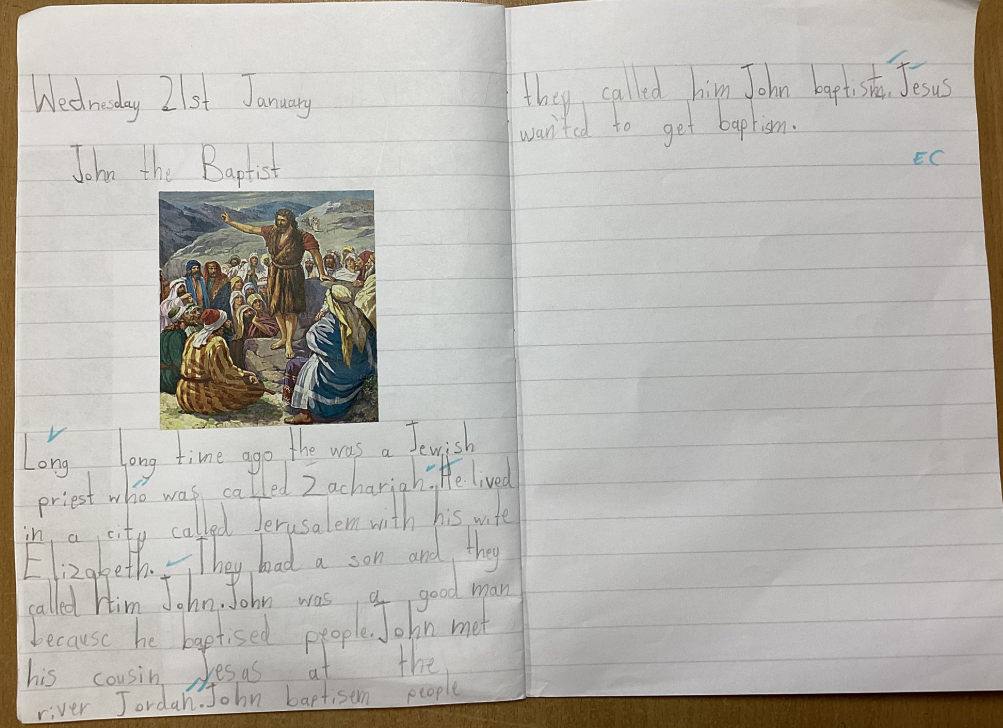 Wednesday 21st January
John the Baptist
Long long time ago the was a Jewish
priest who was called Zachariah. He lived
in a city called Jerusalem with his wife
Elizabeth. They had a son and they
called him John. John was a good man
because he baptised people. John met
his cousin Jesas at the
river Jordan. John baptisem people
they called him John baptist. Jesus
wanted to get baptism.
EC